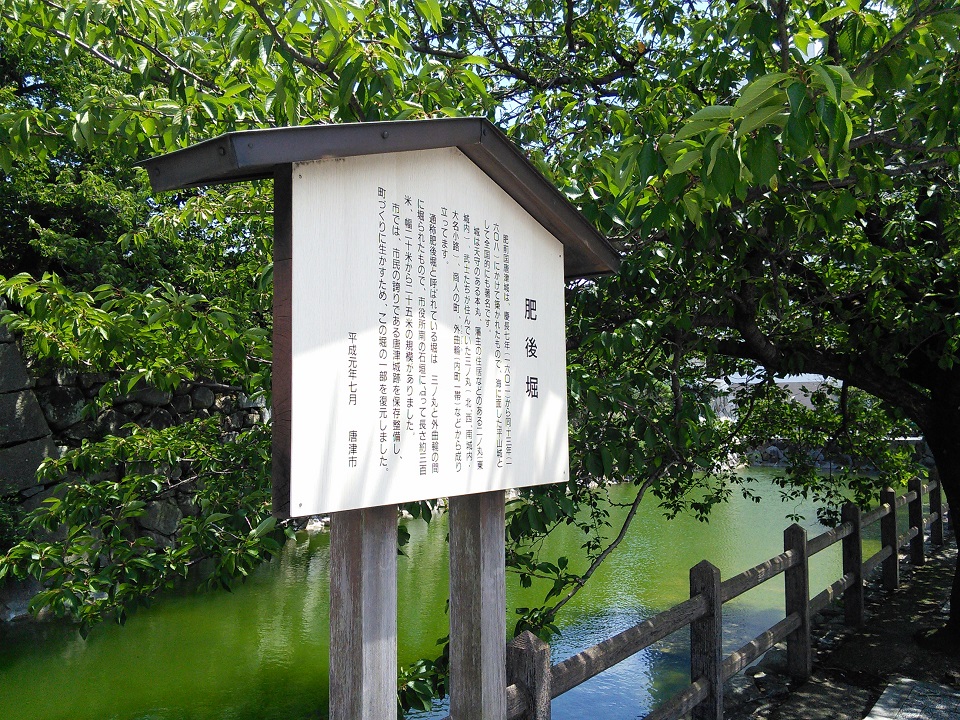 肥後堀
肥前国唐津城は、慶長七年(一六〇二)から同十三年(一
六〇八)にかけて築かれたもので、海に面した平山城と
して全国的にも著名です。
城は天守のある本丸、藩主の住居などのある二ノ丸(東
城内)、武士たちが住んでいた三ノ丸(北、西、南城内・
大名小路)、商人の町、外曲輪(内町一帯)などから成り
立ってます。
通称肥後堀と呼ばれている堀は、三ノ丸と外曲輪の間
に掘られたもので、市役所南の石垣に沿って長さ約三百
米、幅二十米から二十五米の規模がありました。
市では、市民の誇りである唐津城跡を保存整備し、
町づくりに生かすため、この堀の一部を復元しました。
平成元年七月 唐津市